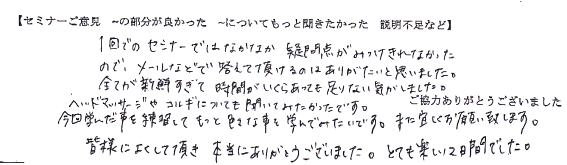 【セミナーご意見 ～の部分が良かった ～についてもっと聞きたかった 説明不足など】
1回でのセミナーではなかなか疑問点がみつけきれなかった
ので、メールなどで答えて頂けるのはありがたいと思いました。
全てが新鮮すぎて時間がいくらあっても足りない気がしました。
ヘッドマッサージやコルギについても聞いてみたかったです。
ご協力ありがとうございました
今回学んだ事を練習してもっと色々な事を学んでみたいです。また宜しくお願い致します。
皆様によくして頂き本当にありがとうございました。とても楽しい2日間でした。